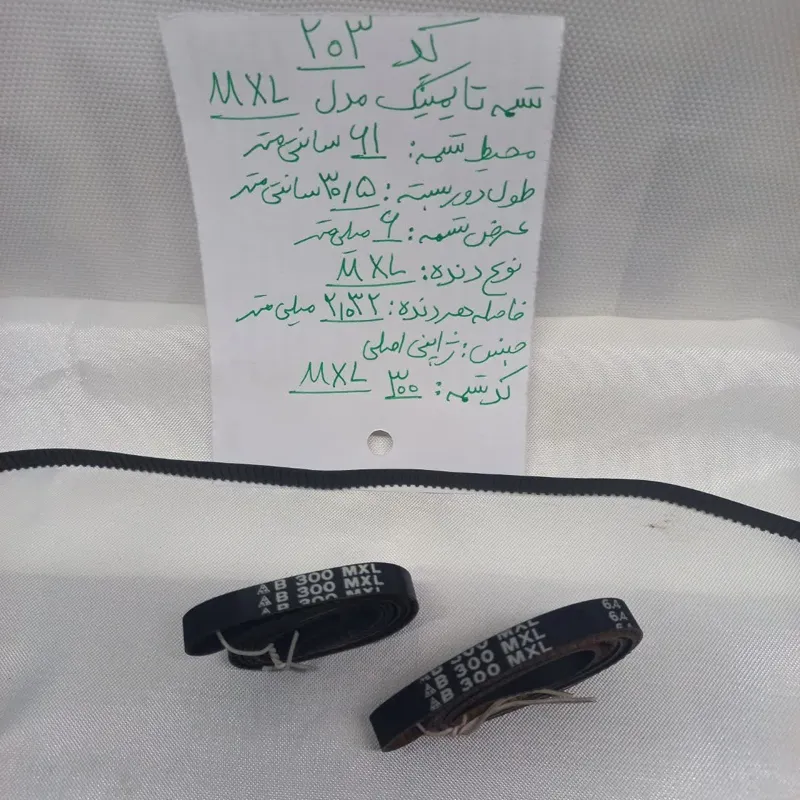 کد ۲۰۳
تسمه تایمینگ مدل MXL
محیط تسمه: ۶۱ سانتی‌متر
طول دور بسته: ۳۰/۵ سانتی‌متر
عرض تسمه: ۶ میلی‌متر
نوع دنده: MXL
فاصله هر دنده: ۲/۰۳۲ میلی‌متر
جنس: ژاپنی اصلی
کد تسمه: ۳۰۰ MXL
B 300 MXL
B 300 MXL
B 300 MXL
6.4
6.4
B 300 MXL
B 300 MXL
B 300 MXL